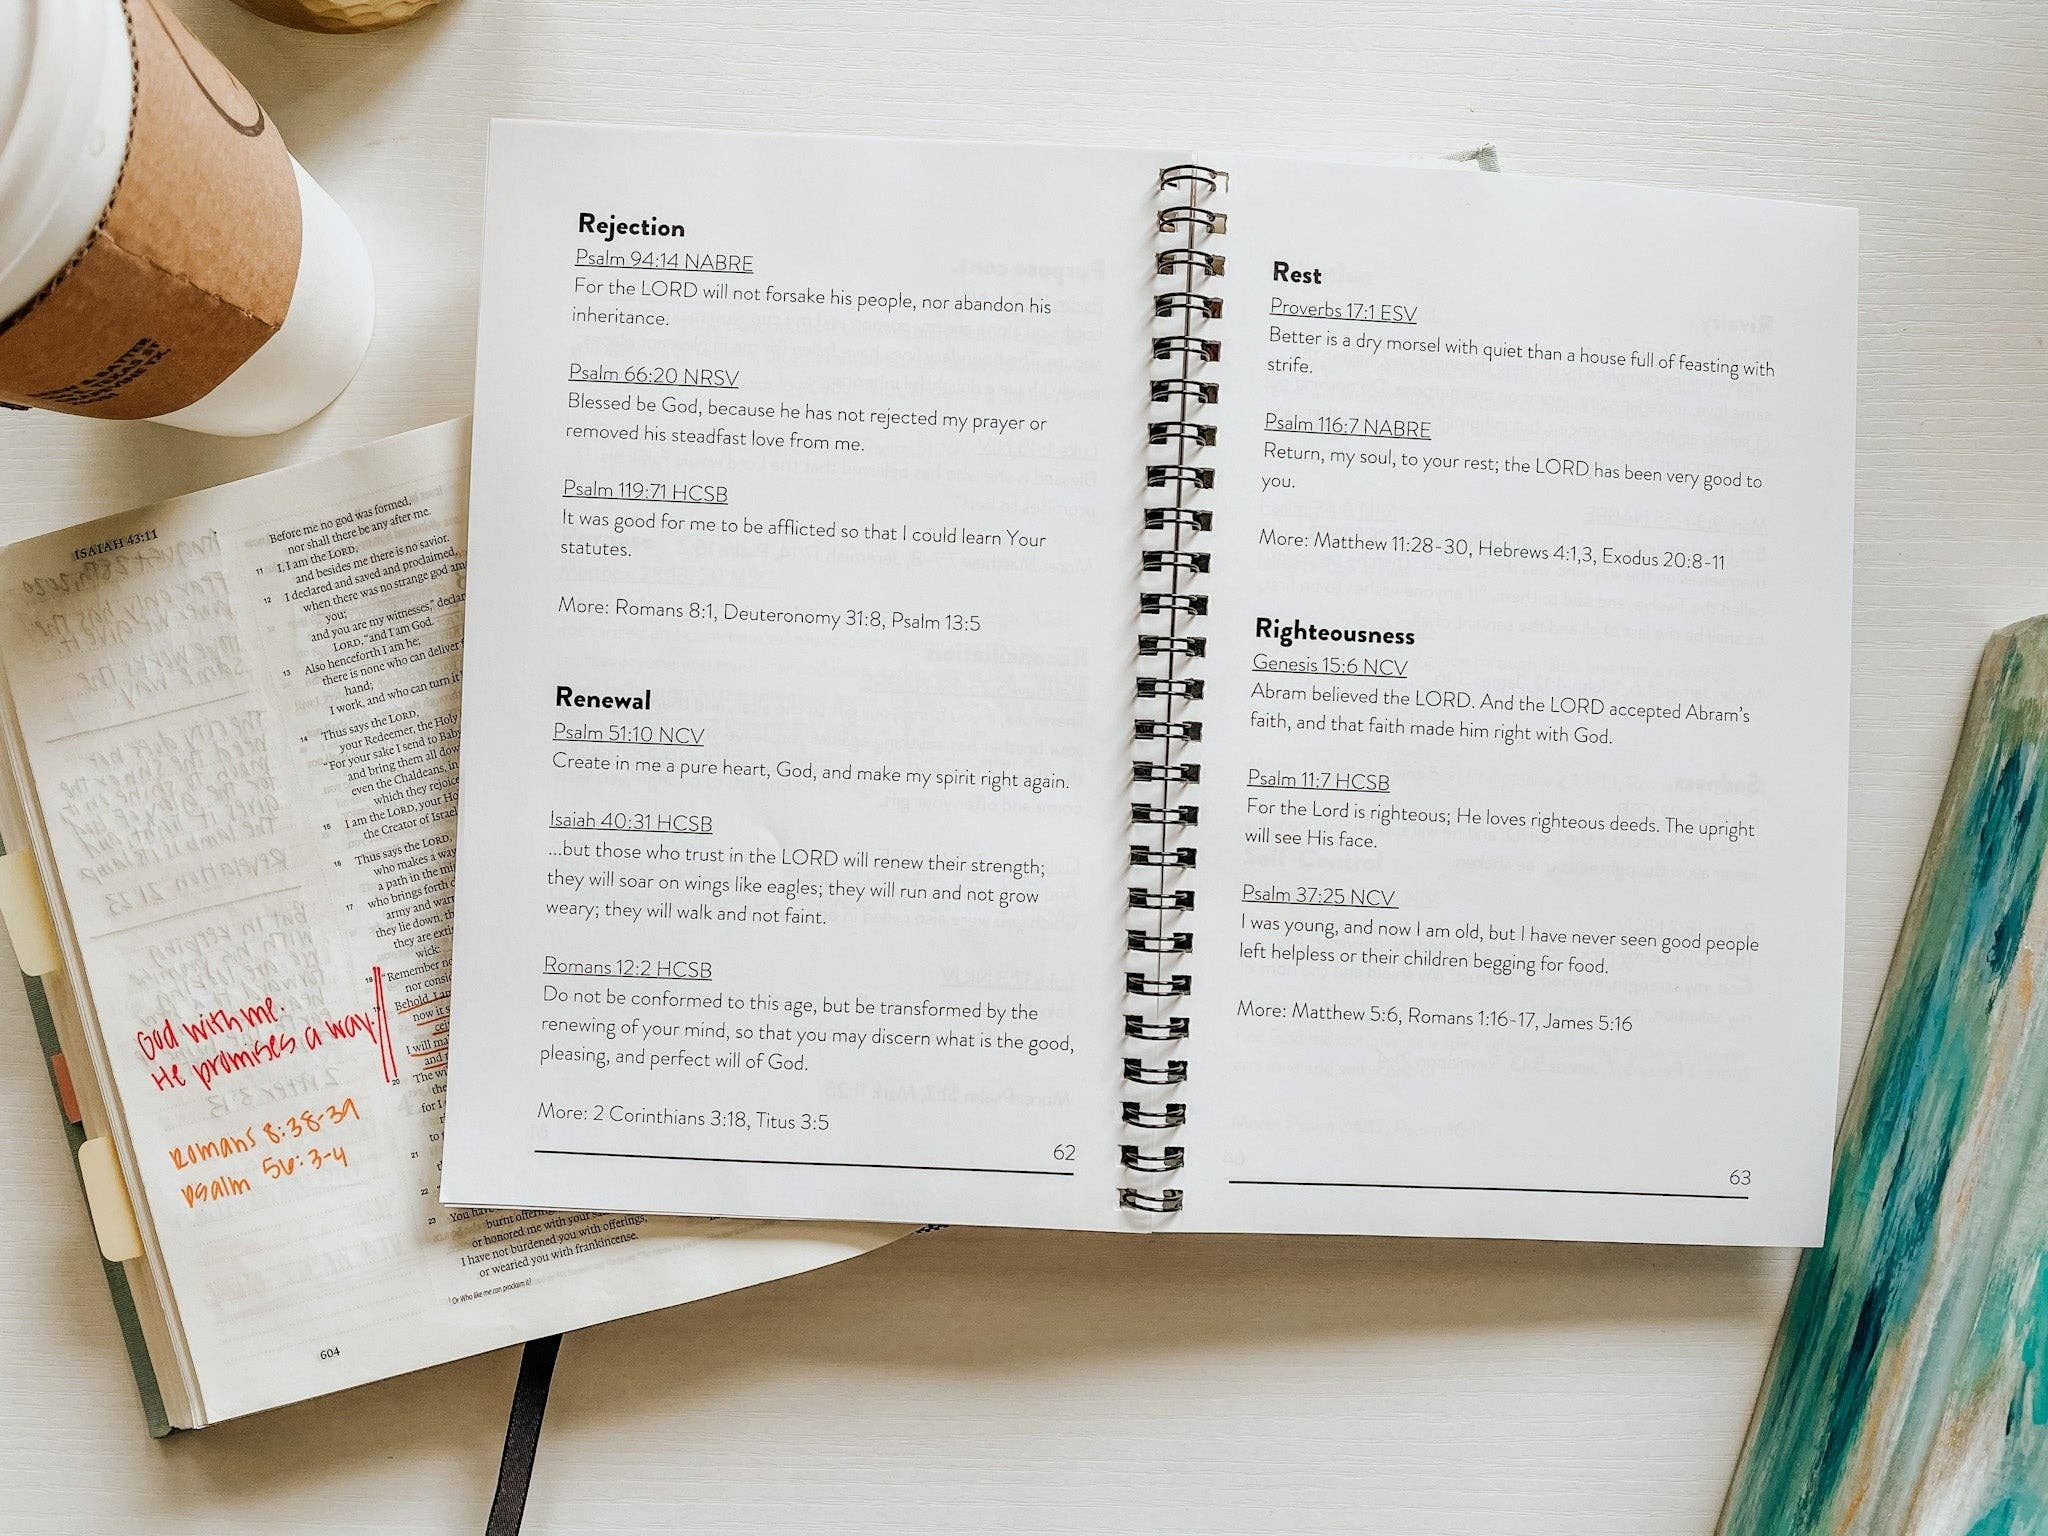 Rejection
Psalm 94:14 NABRE
For the LORD will not forsake his people, nor abandon his
inheritance.
Psalm 66:20 NRSV
Blessed be God, because he has not rejected my prayer or
removed his steadfast love from me.
Psalm 119:71 HCSB
It was good for me to be afflicted so that I could learn Your
statutes.
More: Romans 8:1, Deuteronomy 31:8, Psalm 13:5
Renewal
Psalm 51:10 NCV
Create in me a pure heart, God, and make my spirit right again.
Isaiah 40:31 HCSB
...but those who trust in the LORD will renew their strength;
they will soar on wings like eagles; they will run and not grow
weary; they will walk and not faint.
Romans 12:2 HCSB
Do not be conformed to this age, but be transformed by the
renewing of your mind, so that you may discern what is the good,
pleasing, and perfect will of God.
More: 2 Corinthians 3:18, Titus 3:5
62
Rest
Proverbs 17:1 ESV
Better is a dry morsel with quiet than a house full of feasting with
strife.
Psalm 116:7 NABRE
Return, my soul, to your rest; the LORD has been very good to
you.
More: Matthew 11:28-30, Hebrews 4:1,3, Exodus 20:8-11
Righteousness
Genesis 15:6 NCV
Abram believed the LORD. And the LORD accepted Abram's
faith, and that faith made him right with God.
Psalm 11:7 HCSB
For the Lord is righteous; He loves righteous deeds. The upright
will see His face.
Psalm 37:25 NCV
I was young, and now I am old, but I have never seen good people
left helpless or their children begging for food.
More: Matthew 5:6, Romans 1:16-17, James 5:16
63
ISAIAH 43:11
Before me no god was formed,
nor shall there be any after me.
11 I, I am the LORD,
and besides me there is no savior.
12 I declared and saved and proclaimed,
when there was no strange god
you;
and you are my witnesses,"
LORD, "and I am God.
13 Also henceforth I am he;
there is none who can deliver
hand;
I work, and who can turn it
14 Thus says the LORD,
your Redeemer, the Holy
"For your sake I send to
and bring them all
even the Chaldeans, in
which they rejoice
15 I am the LORD, your
the Creator of Israel
16 Thus says the LORD,
who makes a way
a path in the
17 who brings forth
army and
they lie down,
they are
wick:
18 "Remember
nor
Behold, I
now it
I will
and
20 The
the
for I
to
21
22
23 You have
burnt
or honored me with your
I have not burdened you with offerings,
or wearied you with frankincense.
1 Or Who like me can proclaim it?
604
God with me.
He promises a way.
Romans 8:38-39
psalm 56:3-4